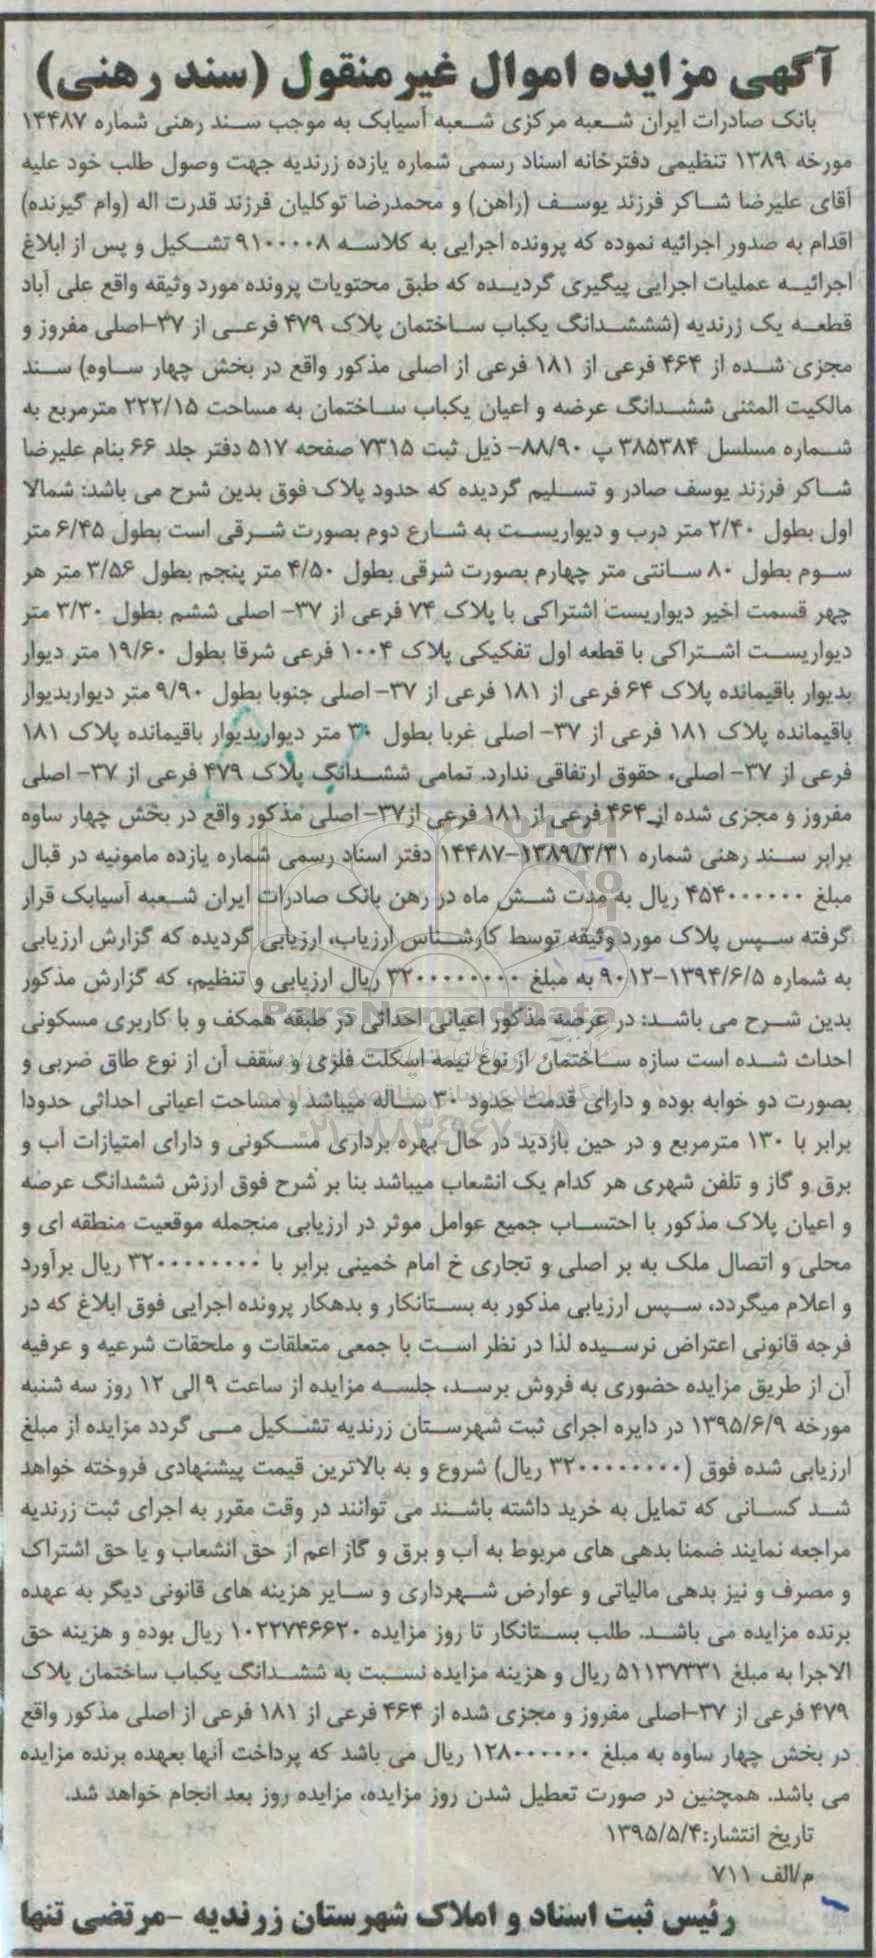 آگهی مزایده اموال غیر منقول (سند رهنی)
بانک صادرات ایران شعبه مرکزی شعبه آسیابک به موجب سند رهنی شماره ۱۴۴۸۷
مورخه ۱۳۸۹ تنظیمی دفترخانه اسناد رسمی شماره یازده زرندیه جهت وصول طلب خود علیه
آقای علیرضا شاکر فرزند یوسف (راهن) و محمدرضا توکلیان فرزند قدرت اله (وام گیرنده)
اقدام به صدور اجرائیه نموده که پرونده اجرایی به کلاسه ۹۱۰۰۰۰۸ تشکیل و پس از ابلاغ
اجرائیه عملیات اجرایی پیگیری گردیده که طبق محتویات پرونده مورد وثیقه واقع علی آباد
قطعه یک زرندیه (شششدانگ یکباب ساختمان پلاک ۴۷۹ فرعی از ۳۷-اصلی مفروز و
مجزی شده از ۴۶۴ فرعی از ۱۸۱ فرعی از اصلی مذکور واقع در بخش چهار ساوه) سند
مالکیت المثنی ششدانگ عرصه و اعیان یکباب ساختمان به مساحت ۲۲۲/۱۵ مترمربع به
شماره مسلسل ۳۸۵۳۸۴ پ ۸۸/۹۰- ذیل ثبت ۷۳۱۵ صفحه ۵۱۷ دفتر جلد ۶۶ بنام علیرضا
شاکر فرزند یوسف صادر و تسلیم گردیده که حدود پلاک فوق بدین شرح می باشد: شمالا
اول بطول ۲/۴۰ متر درب و دیواریست به شارع دوم بصورت شرقی است بطول ۶/۴۵ متر
سوم بطول ۸۰ سانتی متر چهارم بصورت شرقی بطول ۴/۵۰ متر پنجم بطول ۳/۵۶ متر هر
چهر قسمت اخیر دیواریست اشتراکی با پلاک ۷۴ فرعی از ۳۷- اصلی ششم بطول ۳/۳۰ متر
دیواریست اشتراکی با قطعه اول تفکیکی پلاک ۱۰۰۴ فرعی شرقا بطول ۱۹/۶۰ متر دیوار
بدیوار باقیمانده پلاک ۶۴ فرعی از ۱۸۱ فرعی از ۳۷- اصلی جنوبا بطول ۹/۹۰ متر دیواربدیوار
باقیمانده پلاک ۱۸۱ فرعی از ۳۷- اصلی غربا بطول ۳۰ متر دیواربدیوار باقیمانده پلاک ۱۸۱
فرعی از ۳۷- اصلی، حقوق ارتفاقی ندارد. تمامی ششدانگ پلاک ۴۷۹ فرعی از ۳۷- اصلی
مفروز و مجزی شده از ۴۶۴ فرعی از ۱۸۱ فرعی از۳۷- اصلی مذکور واقع در بخش چهار ساوه
برابر سند رهنی شماره ۱۴۴۸۷-۱۳۸۹/۳/۳۱ دفتر اسناد رسمی شماره یازده مامونیه در قبال
مبلغ ۴۵۴۰۰۰۰۰۰ ریال به مدت شش ماه در رهن بانک صادرات ایران شعبه آسیابک قرار
گرفته سپس پلاک مورد وثیقه توسط کارشناس ارزیاب، ارزیابی گردیده که گزارش ارزیابی
به شماره ۹۰۱۲-۱۳۹۴/۶/۵ به مبلغ ۳۲۰۰۰۰۰۰۰۰ ریال ارزیابی و تنظیم، که گزارش مذکور
بدین شرح می باشد: در عرصه مذکور اعیانی احداثی در طبقه همکف و با کاربری مسکونی
احداث شده است سازه ساختمان از نوع نیمه اسکلت فلزی و سقف آن از نوع طاق ضربی و
بصورت دو خوابه بوده و دارای قدمت حدود ۳۰ ساله میباشد و مساحت اعیانی احداثی حدودا
برابر با ۱۳۰ مترمربع و در حین بازدید در حال بهره برداری مسکونی و دارای امتیازات آب و
برق و گاز و تلفن شهری هر کدام یک انشعاب میباشد بنا بر شرح فوق ارزش ششدانگ عرصه
و اعیان پلاک مذکور با احتساب جمیع عوامل موثر در ارزیابی منجمله موقعیت منطقه ای و
محلی و اتصال ملک به بر اصلی و تجاری خ امام خمینی برابر با ۳۲۰۰۰۰۰۰۰۰ ریال برآورد
و اعلام میگردد، سپس ارزیابی مذکور به بستانکار و بدهکار پرونده اجرایی فوق ابلاغ که در
فرجه قانونی اعتراض نرسیده لذا در نظر است با جمعی متعلقات و ملحقات شرعیه و عرفیه
آن از طریق مزایده حضوری به فروش برسد، جلسه مزایده از ساعت ۹ الی ۱۲ روز سه شنبه
مورخه ۱۳۹۵/۶/۹ در دایره اجرای ثبت شهرستان زرندیه تشکیل می گردد مزایده از مبلغ
ارزیابی شده فوق (۳۲۰۰۰۰۰۰۰۰ ریال) شروع و به بالاترین قیمت پیشنهادی فروخته خواهد
شد کسانی که تمایل به خرید داشته باشند می توانند در وقت مقرر به اجرای ثبت زرندیه
مراجعه نمایند ضمنا بدهی های مربوط به آب و برق و گاز اعم از حق انشعاب و یا حق اشتراک
و مصرف و نیز بدهی مالیاتی و عوارض شهرداری و سایر هزینه های قانونی دیگر به عهده
برنده مزایده می باشد. طلب بستانکار تا روز مزایده ۱۰۲۲۷۴۶۶۲۰ ریال بوده و هزینه حق
الاجرا به مبلغ ۵۱۱۳۷۳۳۱ ریال و هزینه مزایده نسبت به ششدانگ یکباب ساختمان پلاک
۴۷۹ فرعی از ۳۷-اصلی مفروز و مجزی شده از ۴۶۴ فرعی از ۱۸۱ فرعی از اصلی مذکور واقع
در بخش چهار ساوه به مبلغ ۱۲۸۰۰۰۰۰۰ ریال می باشد که پرداخت آنها بعهده برنده مزایده
می باشد. همچنین در صورت تعطیل شدن روز مزایده، مزایده روز بعد انجام خواهد شد.
تاریخ انتشار:۱۳۹۵/۵/۴
م/الف ۷۱۱
رئیس ثبت اسناد و املاک شهرستان زرندیه -مرتضی تنها
ParsNamadData